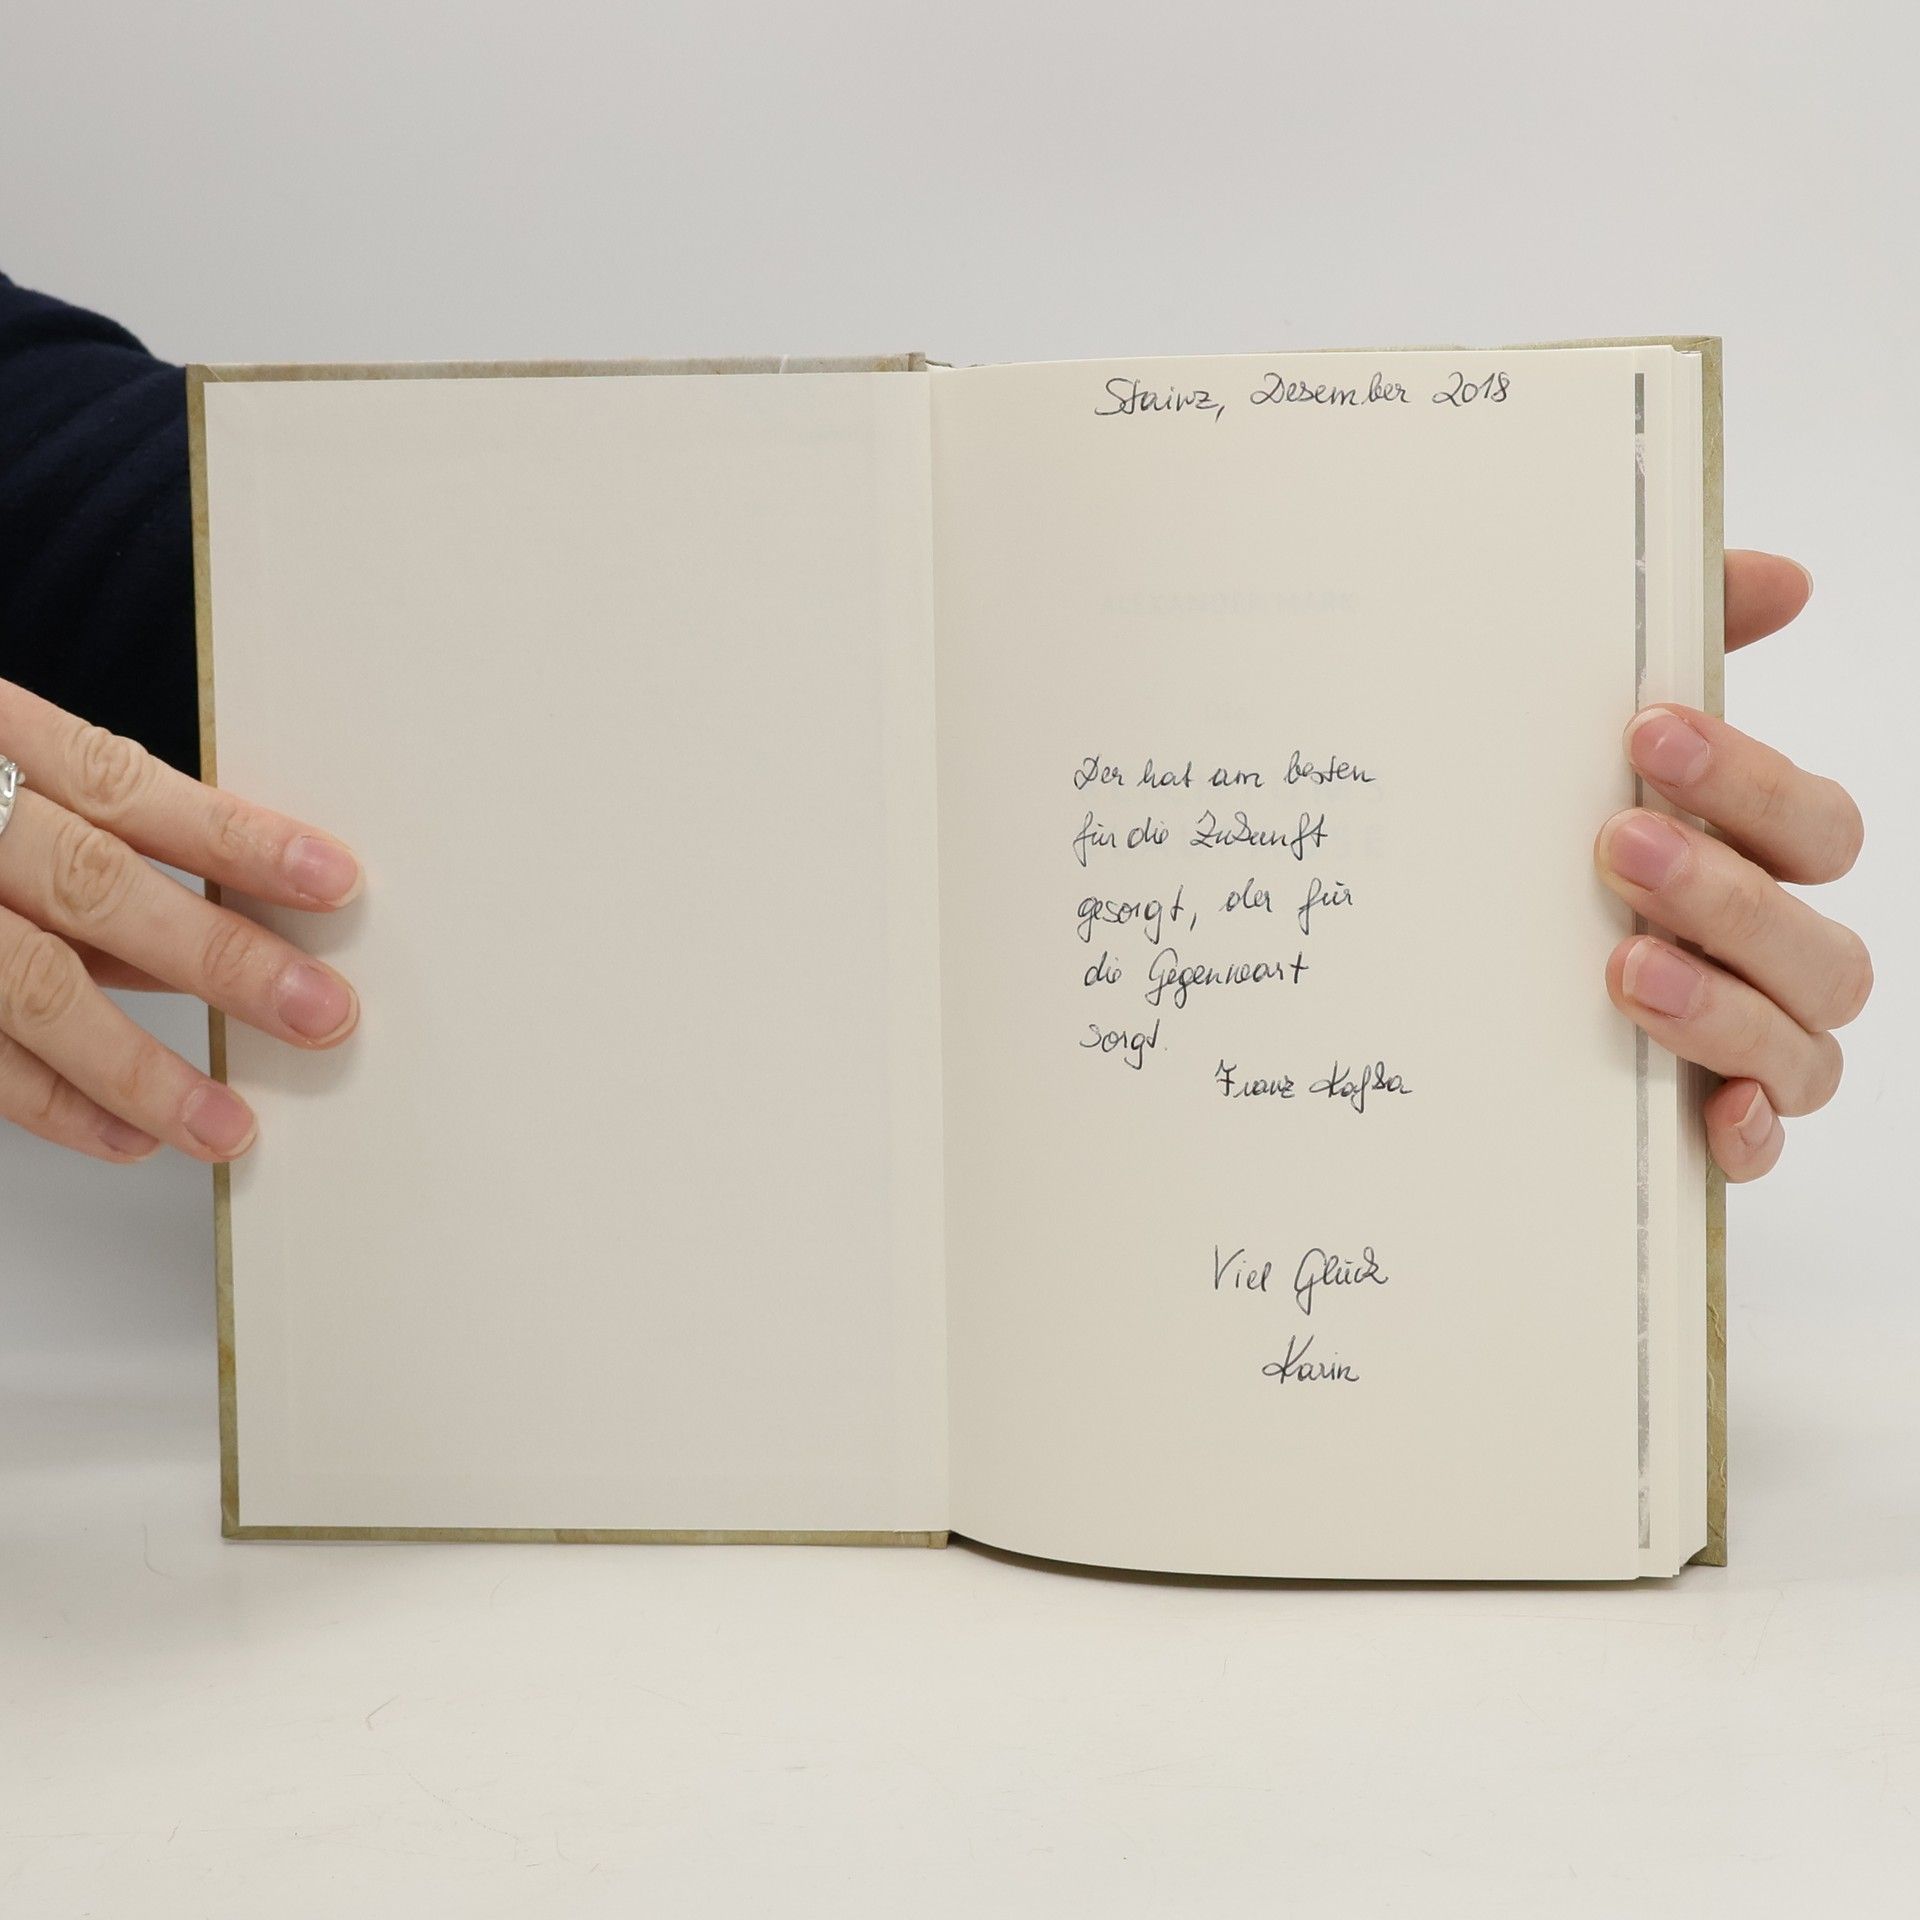 Stainz, Dezember 2018
Der hat am besten
für die Zukunft
gesorgt, der für
die Gegenwart
sorgt.
Franz Kafka
Viel Glück
Karin